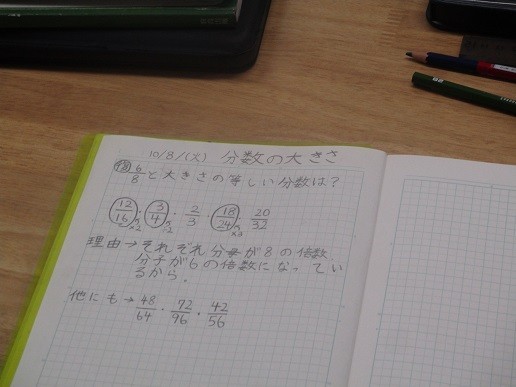 10/8/(火) 分数の大きさ
問 6/8と大きさの等しい分数は?
12/16 ×2 ・ 3/4 ÷2 ・ 2/3 ・ 18/24 ×3 ・ 20/32
理由→それぞれ分母が8の倍数
分子が6の倍数になってい
るから.
他にも→48/64・72/96・42/56